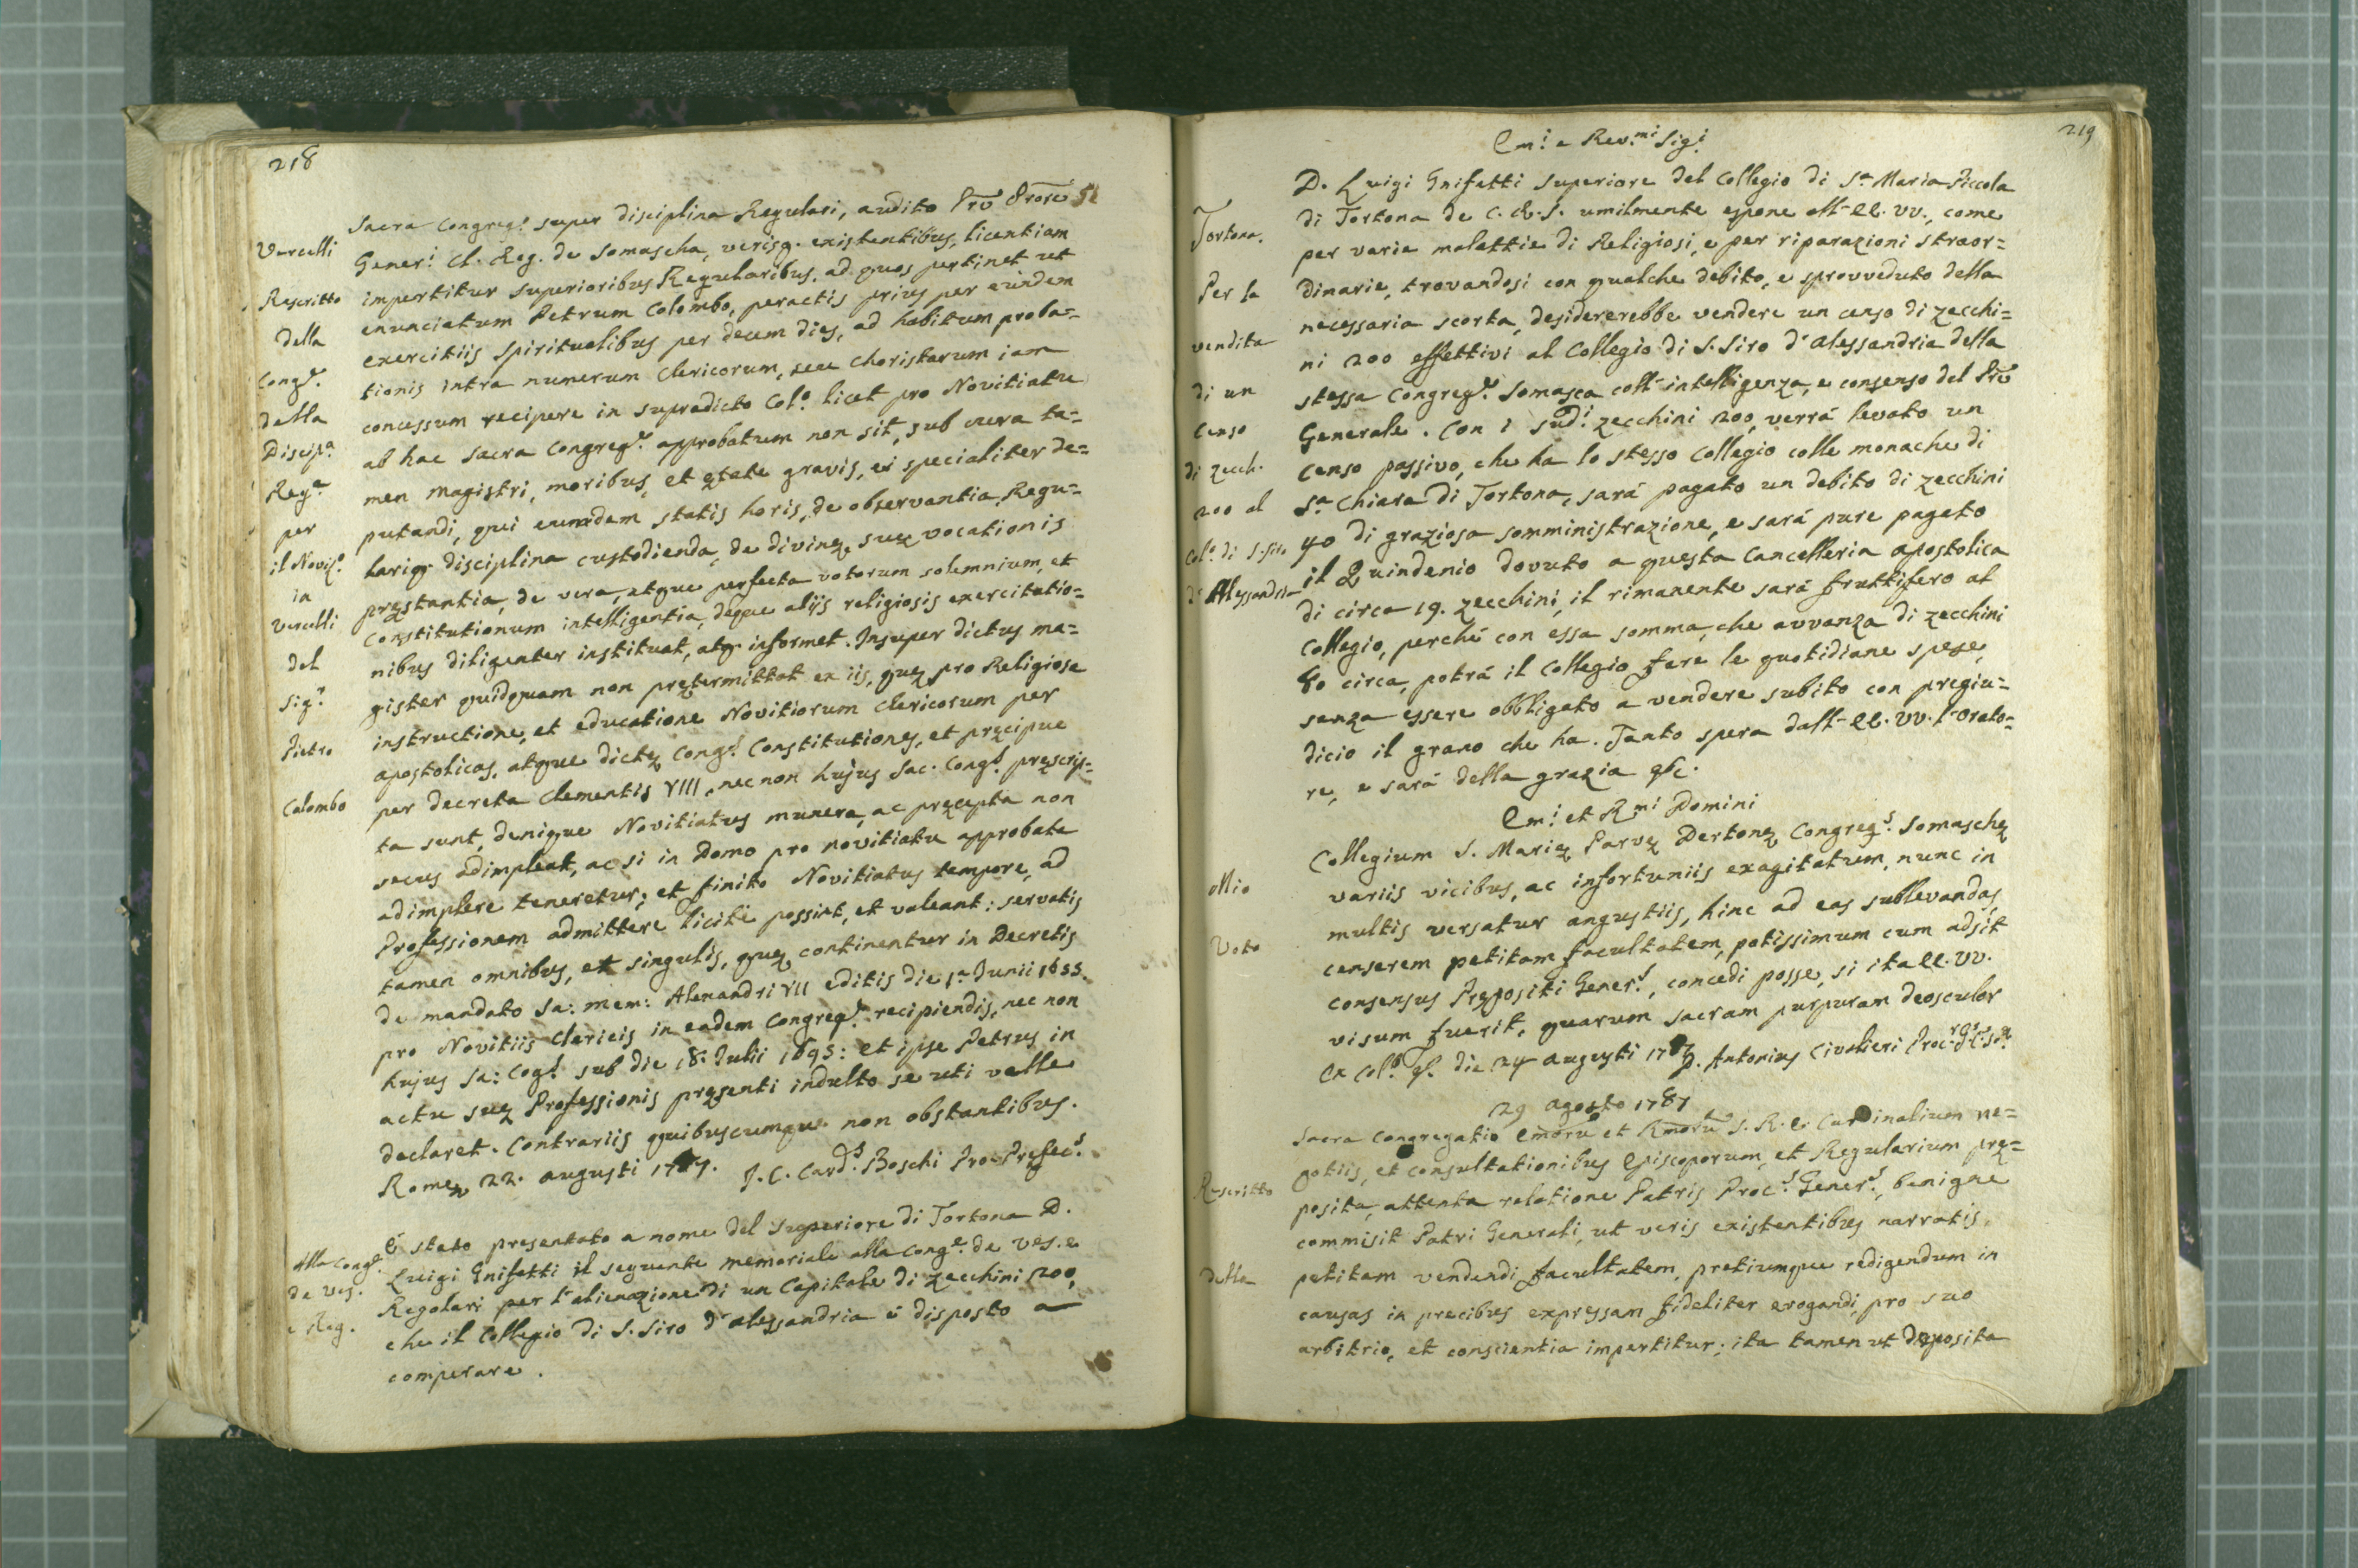 218
Vercelli
Rescritto
della
Cong.e
della
Discip.a
Reg.e
per
il Noviz.o
in
Vercelli
del
Sig.r
Pietro
Colombo
Sacra Congreg.o super disciplina Regulari, audito Prē Prore
Gener.l Cl. Reg. de Somascha, verisq. existentibus, licentiam
impertitur superioribus Regularibus, ad quos pertinet ut
enunciatum Petrum Colombo, peractis prius per eundem
exercitiis spiritualibus per decem dies, ad habitum proba=
tionis intra numerum Clericorum, seu Choristarum iam
concessum recipere in supradicto Col.o licet pro Novitiatu
ab hac Sacra Congreg.e approbatum non sit, sub cura ta=
men Magistri, moribus, et ętate gravis, ei specialiter de=
putandi, qui eumdem statis horis, de observantia, Regu=
larisq. disciplina custodienda, de divinę, suę vocationis
pręstantia, de vera, atque perfecta votorum solemnium, et
Constitutionum intelligentia, deque alijs religiosis exercitatio=
nibus diligenter instituat, atq. informet. Insuper dictus ma=
gister quidquam non prętermittat ex iis, quę pro Religiosa
instructione, et educatione Novitiorum Clericorum per
apostolicas, atque dictę Cong.s Constitutiones, et pręcipue
per decreta Clementis VIII, nec non hujus Sac. Cong.s pręscrip=
ta sunt, denique Novitiatus munera, ac pręcepta non
secus adimpleat, ac si in Domo pro novitiatu approbata
adimplere teneretur; et finito Novitiatus tempore, ad
Professionem admittere licitè possint, et valeant: servatis
tamen omnibus, et singulis, quę continentur in Decretis
de mandato Sa: mem: Alexandri VII editis die 1.a Junii 1655.
pro Novitiis Clericis in eadem Congreg.e recipiendis, nec non
hujus Sa: Cog.s sub die 18. Julii 1695: et ipse Petrus in
actu suę Professionis pręsenti indulto se uti velle
declaret. Contrariis quibuscumque non obstantibus.
Romę 22. augusti 1787. J. C. Card.s Boschi Pro-Pręfec.s
Alla Cong.e
de Ves.
e Reg.
È stato presentato a nome del Superiore di Tortona D.
Luigi Gnifetti il seguente memoriale alla Cong.e de Ves. e
Regolari per l'alienazione di un Capitale di zecchini 200,
che il Collegio di S. Siro d'alessandria è disposto a
comperare.
219
Em.i e Rev.mi Sig.i
Tortona.
Per la
vendita
di un
Censo
di zecch.
200 al
Col.o di S. Siro
d'Alessandria
D. Luigi Gnifetti Superiore del Collegio di S.a Maria Piccola
di Tortona de C. R. S. umilmente espone all'EE. VV., come
per varie malattie di Religiosi, e per riparazioni straor=
dinarie, trovandosi con qualche debito, e sprovveduto della
necessaria scorta, desidererebbe vendere un censo di zecchi=
ni 200 effettivi al Collegio di S. Siro d'Alessandria della
stessa Congreg.e Somasca coll'intelligenza, e consenso del Prē
Generale. Con i sud.i zecchini 200, verrà levato un
censo passivo, che ha lo stesso Collegio colle monache di
S.a Chiara di Tortona, sarà pagato un debito di zecchini
40 di graziosa somministrazione, e sarà pure pagato
il Quindenio dovuto a questa Cancelleria apostolica
di circa 19. zecchini, il rimanente sarà fruttifero al
Collegio, perché con essa somma, che avvanza di zecchini
60 circa, potrà il Collegio fare le quotidiane spese,
senza essere obbligato a vendere subito con pregiu=
dicio il grano che ha. Tanto spera dall'EE. VV. l'Orato=
re, e sarà della grazia &c.
Em.i et R.mi Domini
Mio
Voto
Collegium S. Marię Parvę Dertonę Congreg.s Somaschę
variis vicibus, ac infortuniis exagitatum, nunc in
multis versatur angustiis, hinc ad eas sublevandas,
censerem petitam facultatem, potissimum cum adsit
consensus Pręositi Gener.s, concedi posse, si ita EE. VV.
visum fuerit, quarum sacram purpuram deosculor
Ex Col.o &. die 24 augusti 1787 D. Antonius Civalieri Proc.r
29 agosto 1787
Rescritto
della
Sacra Congregatio Emorū et Rmorū S. R. E. Cardinalium ne=
gotiis, et consultationibus Episcoporum, et Regularium prę=
posita, attenta relatione Patris Proc.s Gener.s, benigne
commisit Patri Generali, ut veris existentibus narratis,
petitam vendendi facultatem, pretiumque redigendum in
causas in precibus expressam fideliter erogandi, pro suo
arbitrio, et conscientia impertitur; ita tamen ut deposita